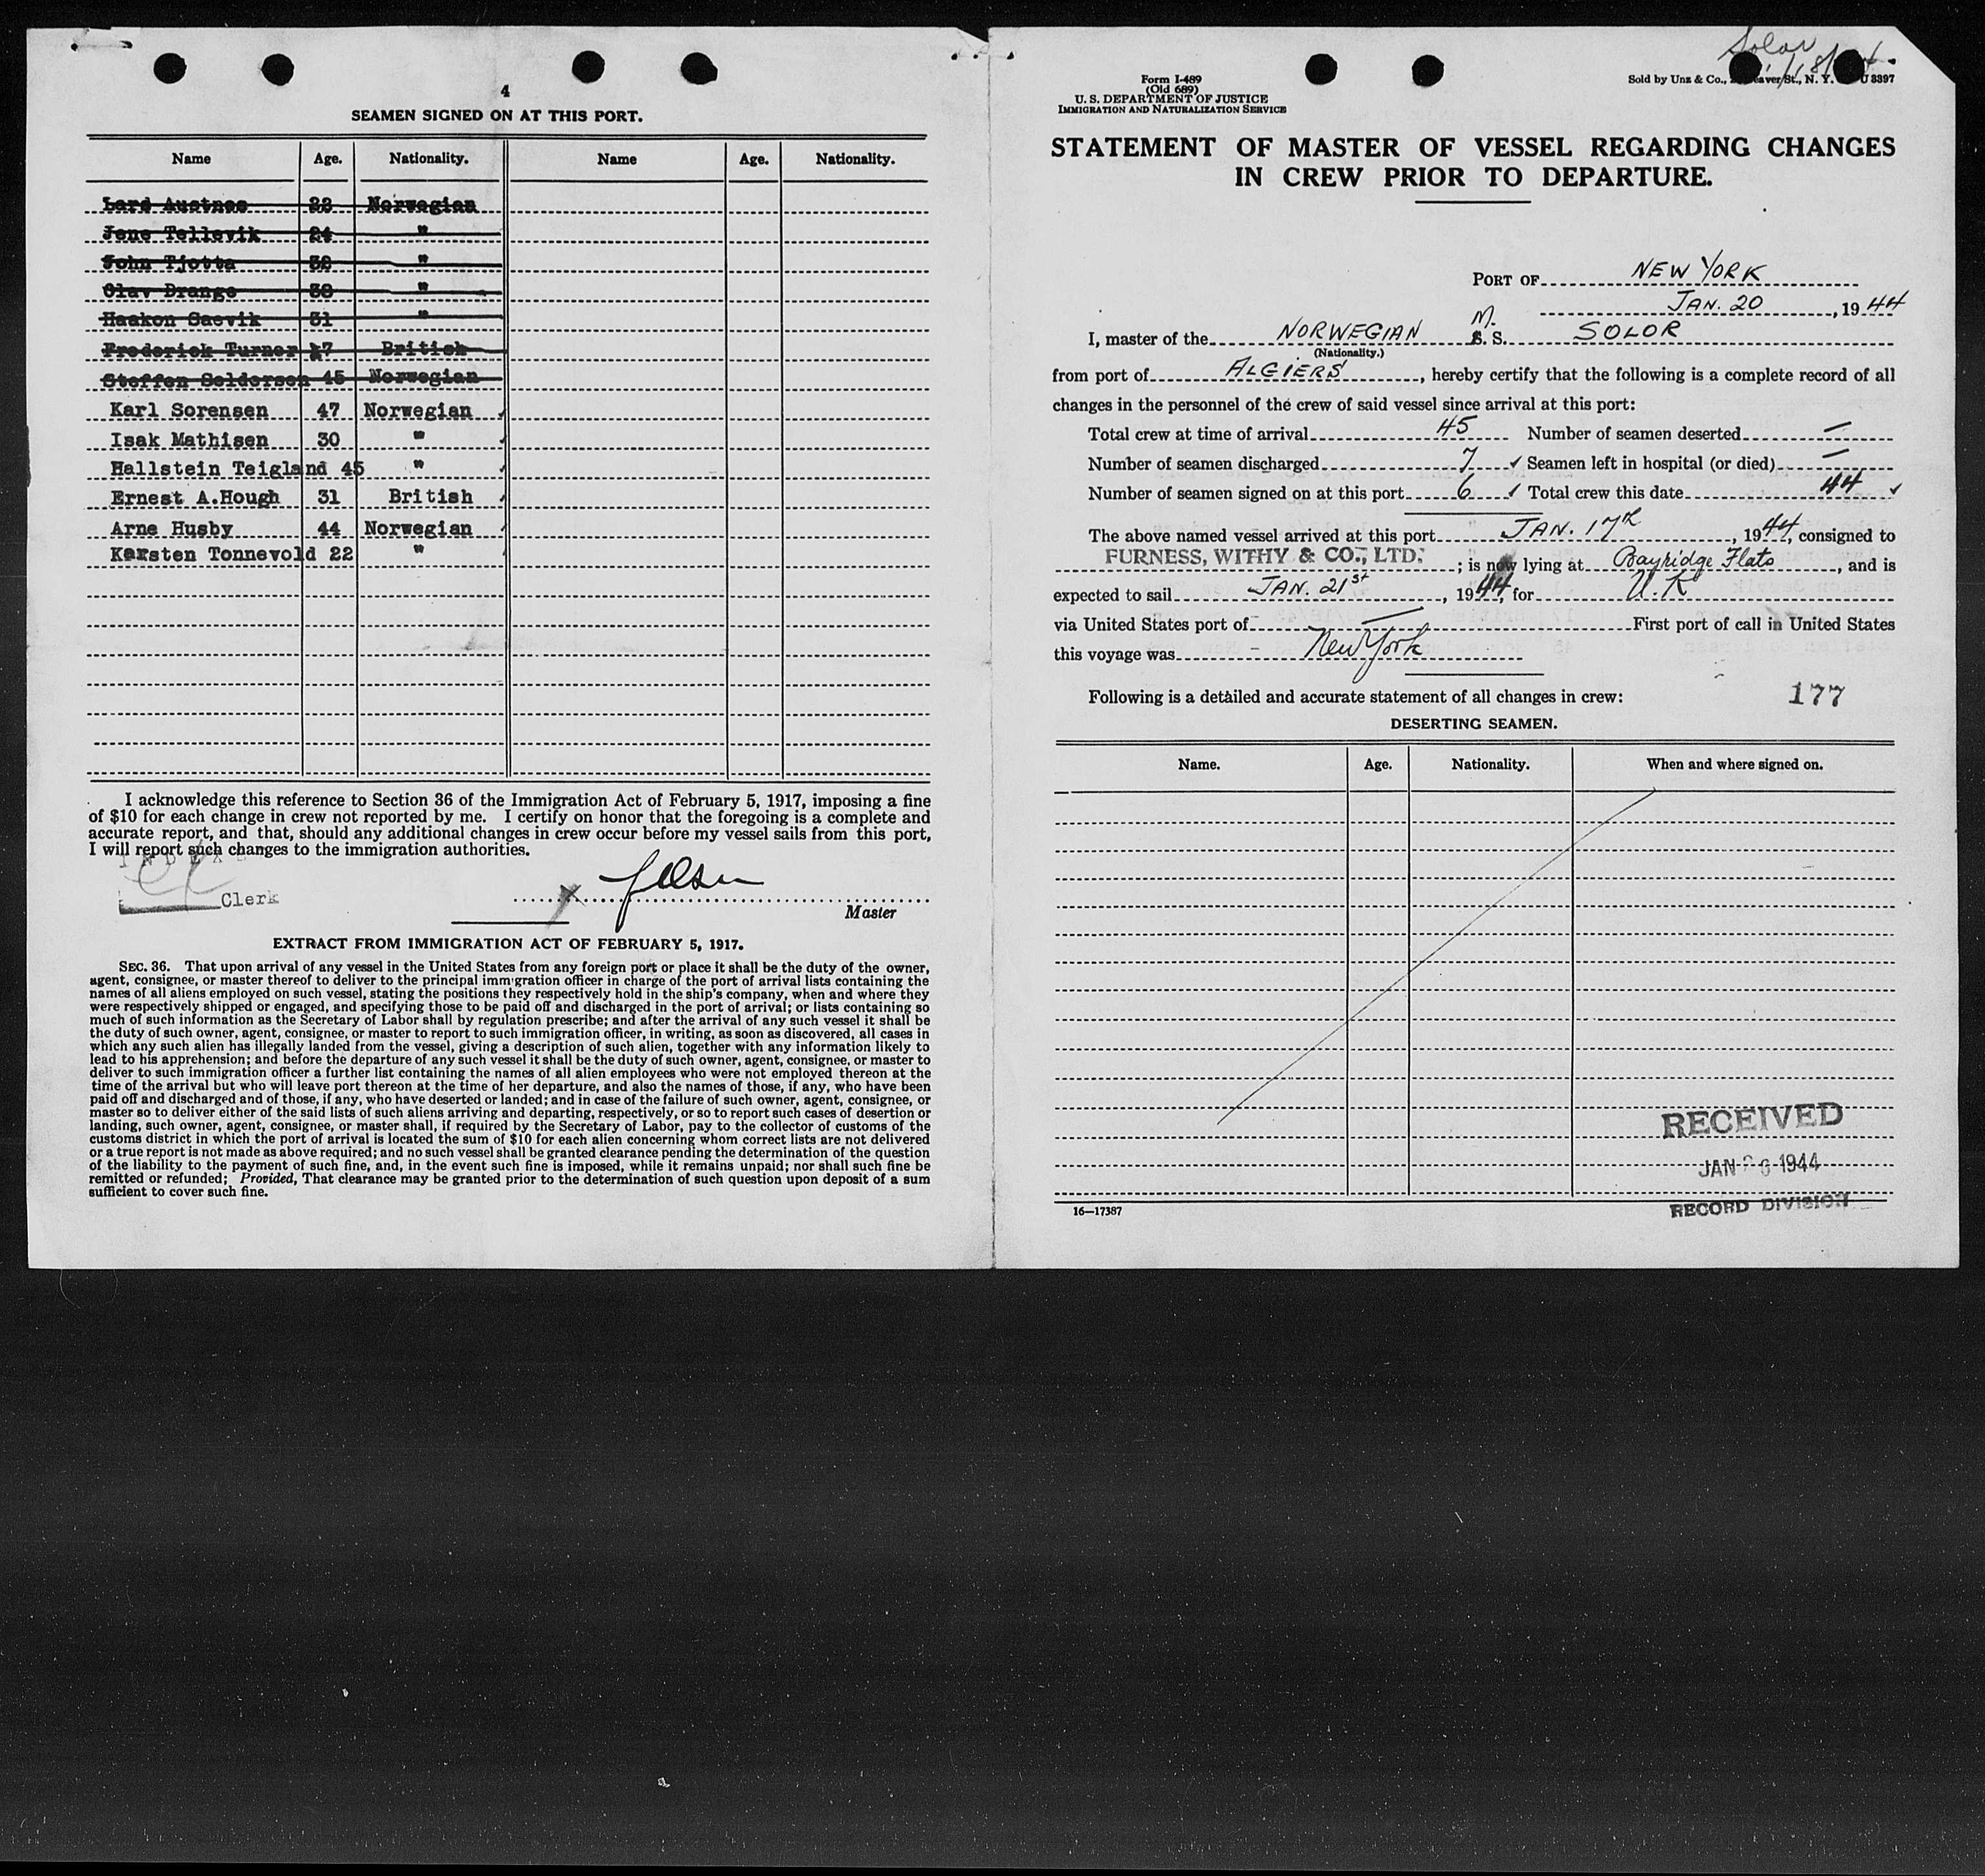 4
SEAMEN SIGNED ON AT THIS PORT.
Name Age. Nationality. Name Age. Nationality.
Lard Austnes 22 Norwegian
Jens Tellevik 24 "
John Tjotta 38 "
Olav Drange 38 "
Haakon Saevik 31 "
Frederick Turner 17 British
Steffen Seldersen 45 Norwegian
Karl Sorensen 47 Norwegian ✓
Isak Mathisen 30 " ✓
Hallstein Teigland 45 " ✓
Ernest A.Hough 31 British ✓
Arne Husby 44 Norwegian ✓
Karsten Tonnevold 22 "
I acknowledge this reference to Section 36 of the Immigration Act of February 5, 1917, imposing a fine
of $10 for each change in crew not reported by me. I certify on honor that the foregoing is a complete and
accurate report, and that, should any additional changes in crew occur before my vessel sails from this port,
I will report such changes to the immigration authorities.
Clerk
Master
EXTRACT FROM IMMIGRATION ACT OF FEBRUARY 5, 1917.
SEC. 36. That upon arrival of any vessel in the United States from any foreign port or place it shall be the duty of the owner,
agent, consignee, or master thereof to deliver to the principal immigration officer in charge of the port of arrival lists containing the
names of all aliens employed on such vessel, stating the positions they respectively hold in the ship's company, when and where they
were respectively shipped or engaged, and specifying those to be paid off and discharged in the port of arrival; or lists containing so
much of such information as the Secretary of Labor shall by regulation prescribe; and after the arrival of any such vessel it shall be
the duty of such owner, agent, consignee, or master to report to such immigration officer, in writing, as soon as discovered, all cases in
which any such alien has illegally landed from the vessel, giving a description of such alien, together with any information likely to
lead to his apprehension; and before the departure of any such vessel it shall be the duty of such owner, agent, consignee, or master to
deliver to such immigration officer a further list containing the names of all alien employees who were not employed thereon at the
time of the arrival but who will leave port thereon at the time of her departure, and also the names of those, if any, who have been
paid off and discharged and of those, if any, who have deserted or landed; and in case of the failure of such owner, agent, consignee, or
master so to deliver either of the said lists of such aliens arriving and departing, respectively, or so to report such cases of desertion or
landing, such owner, agent, consignee, or master shall, if required by the Secretary of Labor, pay to the collector of customs of the
customs district in which the port of arrival is located the sum of $10 for each alien concerning whom correct lists are not delivered
or a true report is not made as above required; and no such vessel shall be granted clearance pending the determination of the question
of the liability to the payment of such fine, and, in the event such fine is imposed, while it remains unpaid; nor shall such fine be
remitted or refunded; Provided, That clearance may be granted prior to the determination of such question upon deposit of a sum
sufficient to cover such fine.
Solor
Form I-489
(Old 689)
U. S. DEPARTMENT OF JUSTICE
IMMIGRATION AND NATURALIZATION SERVICE
Sold by Unz & Co., Beaver St., N. Y. 3397
STATEMENT OF MASTER OF VESSEL REGARDING CHANGES
IN CREW PRIOR TO DEPARTURE.
PORT OF NEW YORK
JAN. 20, 1944
I, master of the NORWEGIAN M. S. S. SOLOR
(Nationality.)
from port of ALGIERS, hereby certify that the following is a complete record of all
changes in the personnel of the crew of said vessel since arrival at this port:
Total crew at time of arrival 45 Number of seamen deserted —
Number of seamen discharged 7 ✓ Seamen left in hospital (or died) —
Number of seamen signed on at this port 6 ✓ Total crew this date 44 ✓
The above named vessel arrived at this port JAN. 17th, 1944, consigned to
FURNESS, WITHY & CO., LTD. ; is now lying at Bayridge Flats, and is
expected to sail JAN. 21st, 1944, for U.K
via United States port of — First port of call in United States
this voyage was New York
Following is a detailed and accurate statement of all changes in crew: 177
DESERTING SEAMEN.
Name. Age. Nationality. When and where signed on.
RECEIVED
JAN 26 1944
RECORD DIVISION
16—17387